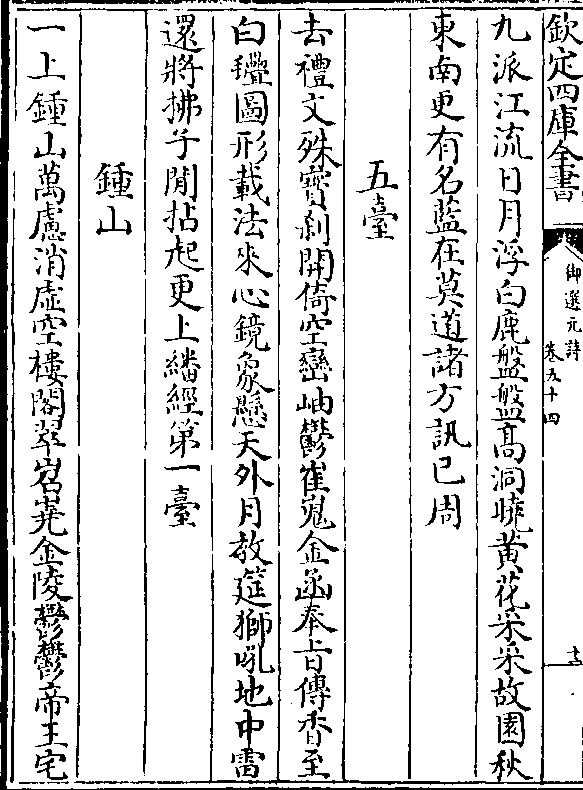 欽定四庫全書
御選元詩
卷五十四
九派江流日月浮白鹿盤盤高洞曉黄花采采故園秋
東南更有名藍在莫道諸方訊已周
五臺
去禮文殊寳刹開倚空巒岫鬱崔嵬金函奉㫖傳香至
白㲲圖形載法來心鏡象懸天外月教筵獅吼地中雷
還將拂子閒拈起更上繙經第一臺
鍾山
一上鍾山萬慮消虛空樓閣翠岧嶤金陵鬱鬱帝王宅